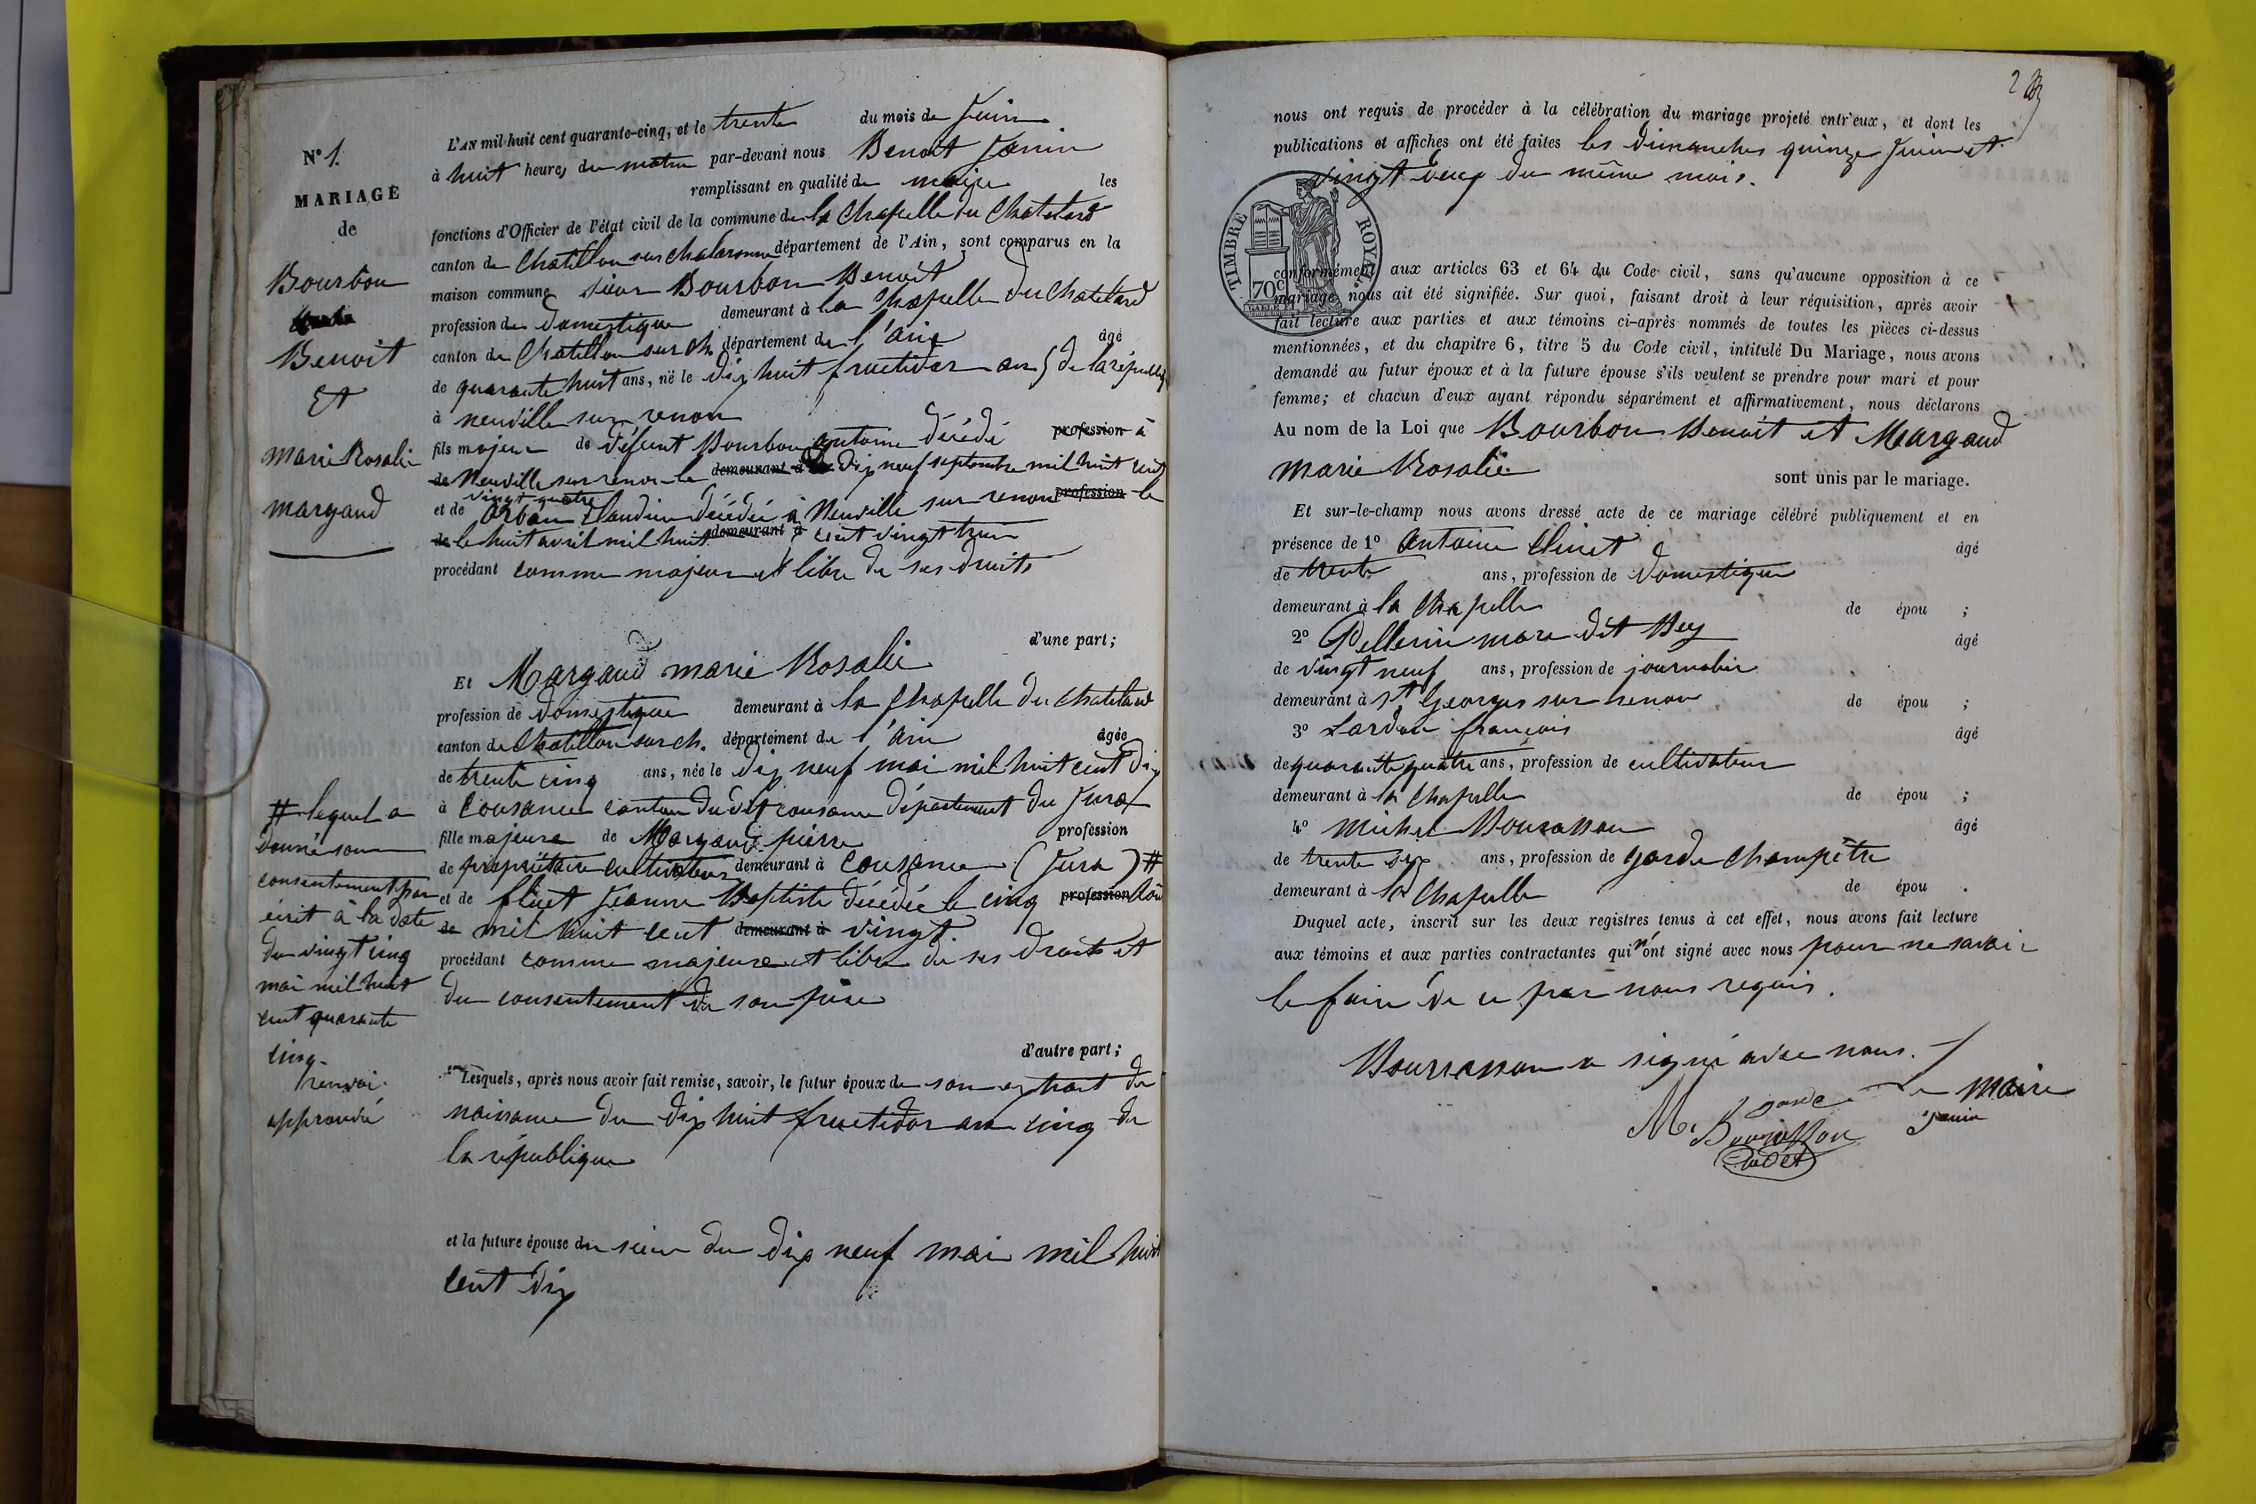 N° 1.
MARIAGE
de
Bourbon
Benoit
Et
Marie Rosalie
Margaud
L'AN mil huit cent quarante-cinq, et le trente du mois de Juin
à huit heures du matin par-devant nous Benoit Janin
remplissant en qualité de maire les
fonctions d'Officier de l'état civil de la commune de la Chapelle du Chatelard
canton de Chatillon sur Chalaronne département de l'Ain, sont comparus en la
maison commune, sieur Bourbon Benoit
profession de domestique demeurant à la Chapelle du Chatelard
canton de Chatillon sur ch. département de l'ain âgé
de quarante huit ans, né le dix huit fructidor an 5 de la république
à neuville sur renon
fils majeur de défunt Bourbon antoine décédé profession à
de Neuville sur renon le demeurant à dix neuf septembre mil huit cent
vingt quatre
et de Orban Claudine décédée à Neuville sur renon profession le
de le huit avril mil huit demeurant à cent vingt trois
procédant comme majeur et libre de ses droits
d'une part;
Et Margaud marie Rosalie
profession de domestique demeurant à la Chapelle du Chatelard
canton de Chatillon sur ch. département de l'ain âgée
de trente cinq ans, née le dix neuf mai mil huit cent dix
à Cousance canton dudit cousance département du Jura
fille majeure de Margaud pierre profession
de propriétaire cultivateur demeurant à Cousance (Jura) #
et de fluet Jeanne Baptiste décédée le cinq profession août
de mil huit cent demeurant à vingt.
procédant comme majeure et libre de ses droits et
du consentement de son père
# lequel a
donné son
consentement par
écrit à la date
du vingt cinq
mai mil huit
cent quarante
cinq.
renvoi
approuvé
d'autre part;
Lesquels, après nous avoir fait remise, savoir, le futur époux de son extrait de
naissance du dix huit fructidor an cinq de
la république
et la future épouse du sien du dix neuf mai mil huit
cent dix
nous ont requis de procéder à la célébration du mariage projeté entr'eux, et dont les
publications et affiches ont été faites les dimanches quinze Juin et
vingt deux du même mois.
TIMBRE ROYAL.
70c
conformément aux articles 63 et 64 du Code civil, sans qu'aucune opposition à ce
mariage nous ait été signifiée. Sur quoi, faisant droit à leur réquisition, après avoir
fait lecture aux parties et aux témoins ci-après nommés de toutes les pièces ci-dessus
mentionnées, et du chapitre 6, titre 5 du Code civil, intitulé Du Mariage, nous avons
demandé au futur époux et à la future épouse s'ils veulent se prendre pour mari et pour
femme; et chacun d'eux ayant répondu séparément et affirmativement, nous déclarons
Au nom de la Loi que Bourbon Benoit et Margaud
Marie Rosalie sont unis par le mariage.
Et sur-le-champ nous avons dressé acte de ce mariage célébré publiquement et en
présence de 1° Antoine âgé
de trente ans, profession de domestique
demeurant à la Chapelle de épou ;
2° Pellerin marc dit Bey âgé
de vingt neuf ans, profession de journalier
demeurant à St Georges sur renon de épou ;
3° Lardon françois âgé
de quarante quatre ans, profession de cultivateur
demeurant à la chapelle de épou ;
4° Michel Bourasson âgé
de trente six ans, profession de garde champêtre
demeurant à la Chapelle de épou .
Duquel acte, inscrit sur les deux registres tenus à cet effet, nous avons fait lecture
aux témoins et aux parties contractantes qui n'ont signé avec nous pour ne savoir
le faire de ce par nous requis.
Bourrasson a signé avec nous.
garde Le Maire
M. Bourasson Janin